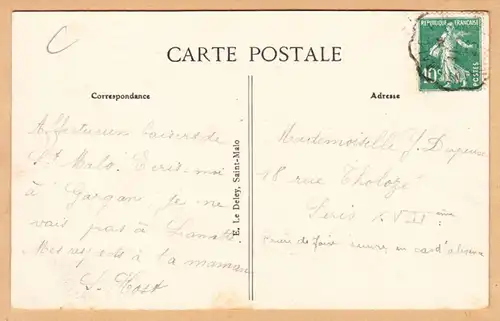 C
CARTE POSTALE
REPUBLIQUE FRANÇAISE
10c POSTES
Correspondance
Adresse
Affectueux baisers de
St Malo. Ecris-moi
à Gargan je ne
vais pas à
Mes respects à la maman
E. Le Deley, Saint-Malo
Mademoiselle J.
18 rue Tholozé
Paris XVIII ème
Prière de faire suivre en cas d'absence